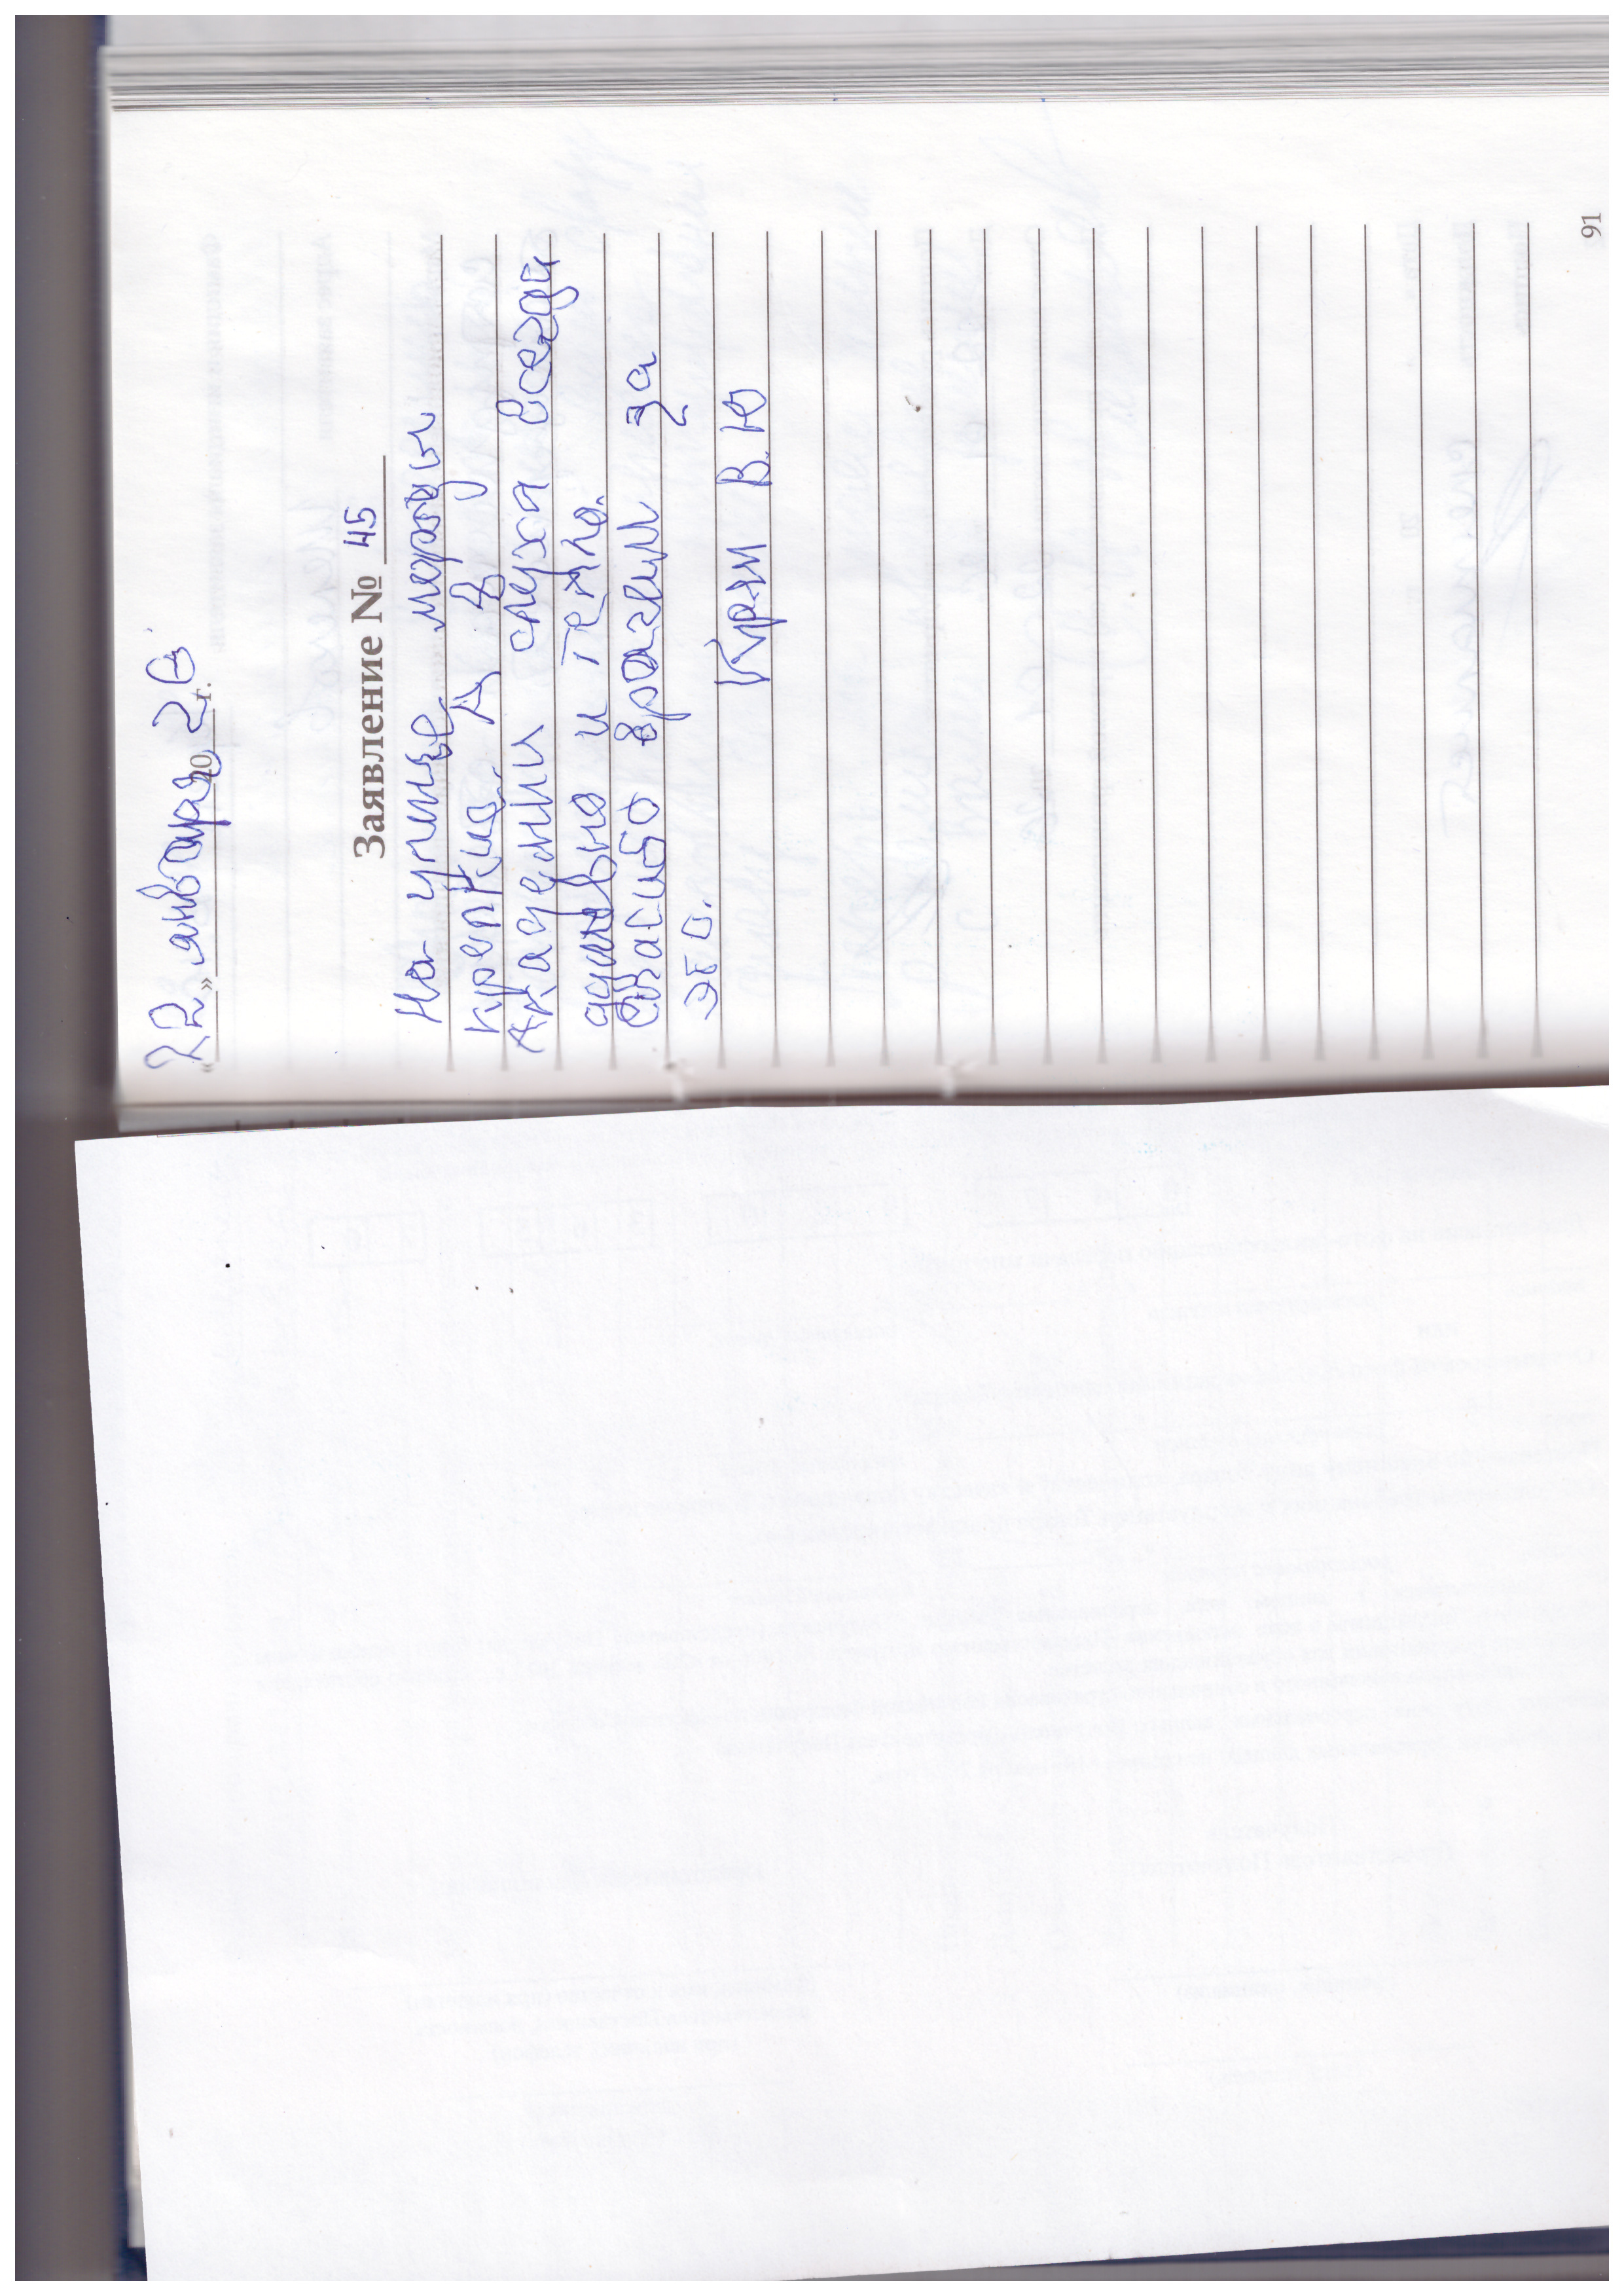 «22» января 2026 г.
Заявление № 45
На улице морозы
крепкие. А в
Академии слуха всегда
душевно и тепло.
Спасибо врачам за
это.
Крям В.Ю
91